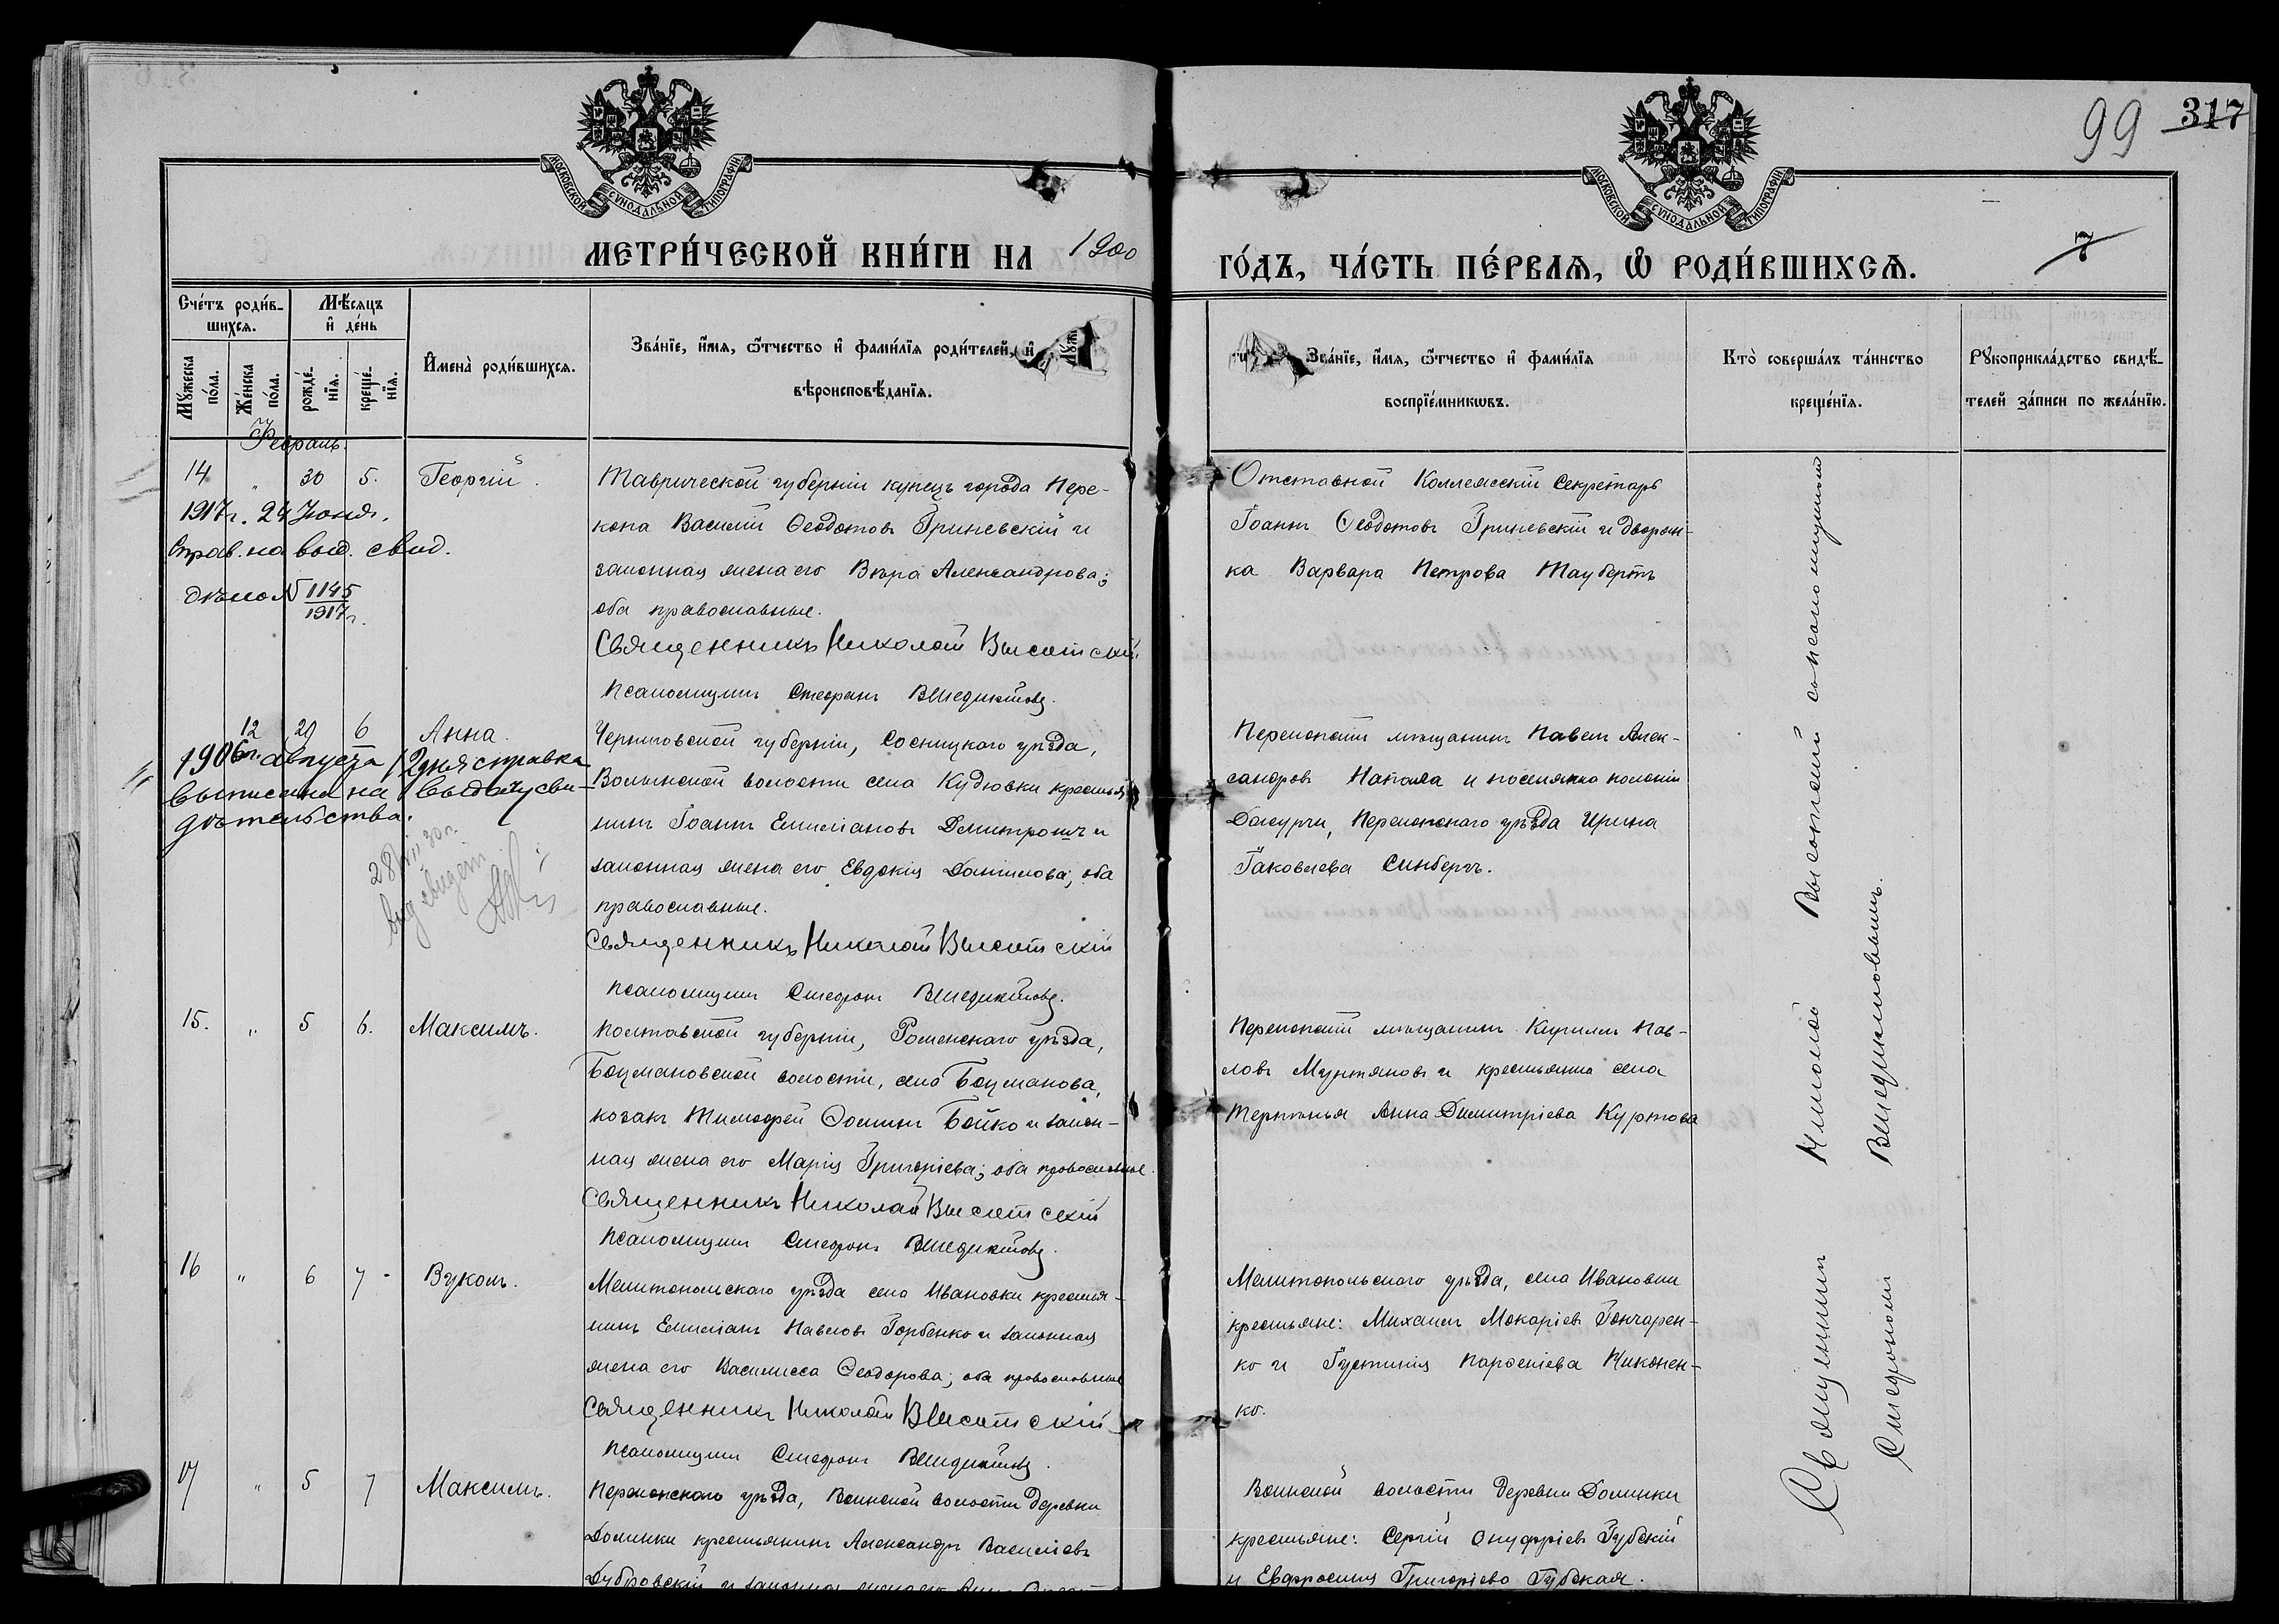 99 317
МОСКОВСКОЙ СѴНОДАЛЬНОЙ ТИПОГРАФІИ
МОСКОВСКОЙ СѴНОДАЛЬНОЙ ТИПОГРАФІИ
МЕТРИ́ЧЕСКОЙ КНИ́ГИ НА 1900
ГО́ДЪ, ЧА́СТЬ ПЕ́РВАѦ, Ѡ҆ РОДИ́ВШИХСѦ.
7
Сче́тъ роди́в-
шихсѧ.
Мѣ́сѧцъ
и҆ де́нь
Мꙋ́жеска по́ла.
Же́нска по́ла.
рожде́-нїѧ.
креще́-нїѧ.
И҆мена̀ роди́вшихсѧ.
Зва́нїе, и҆́мѧ, ѻ҆́тчество и҆ фами́лїѧ роди́телей, и҆
вѣроисповѣ́данїѧ.
Зва́нїе, и҆́мѧ, ѻ҆́тчество и҆ фами́лїѧ
воспрїе́мникѡвъ.
Кто̀ соверша́лъ та́инство
креще́нїѧ.
Рꙋкоприкла́дство свидѣ́-
телей за́писи по жела́нїю.
Февраль.
14 " 30 5. Георгій.
1917 г. 24 Іюня.
Справ. на выд. свид.
дѣло № 1145
1917 г.
Таврической губерніи купецъ города Пере-
копа Василій Ѳеодотовъ Гриневскій и
законная жена его Вѣра Александрова;
оба православные.
Священникъ Николай Высотскій
Псаломщикъ Стефанъ Венедиктовъ.
Отставной Коллежскій Секретарь
Іоаннъ Ѳеодотовъ Гриневскій и дворян-
ка Варвара Петрова Таубертъ
12 29 6 Анна.
1906 г. августа 12 дня справка
выписана на выдачу сви-
дѣтельства.
28/VII 30 г.
выд. свидет.
Черниговской губерніи, Сосницкаго уѣзда,
Волынской волости села Кудровки крестья
нинъ Іоаннъ Емиліановъ Дмитровичъ и
законная жена его Евдокія Даніилова; оба
православные.
Священникъ Николай Высотскій
Псаломщикъ Стефанъ Венедиктовъ.
Перекопскій мѣщанинъ Павелъ Алек-
сандровъ Напала и поселянка колоніи
Джурчи, Перекопскаго уѣзда Ирина
Іаковлева Синбергъ.
15. " 5 6. Максимъ.
Полтавской губерніи, Роменскаго уѣзда,
Боцмановской волости, села Боцманова,
козакъ Тимофей Ѳоминъ Бойко и закон-
ная жена его Марія Григоріева; оба православные.
Священникъ Николай Высотскій
Псаломщикъ Стефанъ Венедиктовъ.
Перекопскій мѣщанинъ Кириллъ Пав-
ловъ Мунтяновъ и крестьянка села
Терпѣнья Анна Димитріева Куртова
16 " 6 7 - Вуколъ.
Мелитопольскаго уѣзда села Ивановки крестья-
нинъ Емиліанъ Павловъ Горбенко и законная
жена его Василисса Ѳеодорова; оба православные
Священникъ Николай Высотскій
Псаломщикъ Стефанъ Венедиктовъ.
Мелитопольскаго уѣзда, села Ивановки
крестьяне: Михаилъ Макаріевъ Гончарен-
ко и Іустинія Парѳеніева Никонен-
ко.
17 " 5 7 Максимъ.
Перекопскаго уѣзда, Воинской волости деревни
Долинки крестьянинъ Александръ Васильевъ
Дубровскій и законная жена его
Воинской волости деревни Долинки
крестьяне: Сергій Онуфріевъ Губскій
и Евфросинія Григоріева Губская.
Священникъ Николай Высотскій съ псаломщикомъ
Стефаномъ Венедиктовымъ.